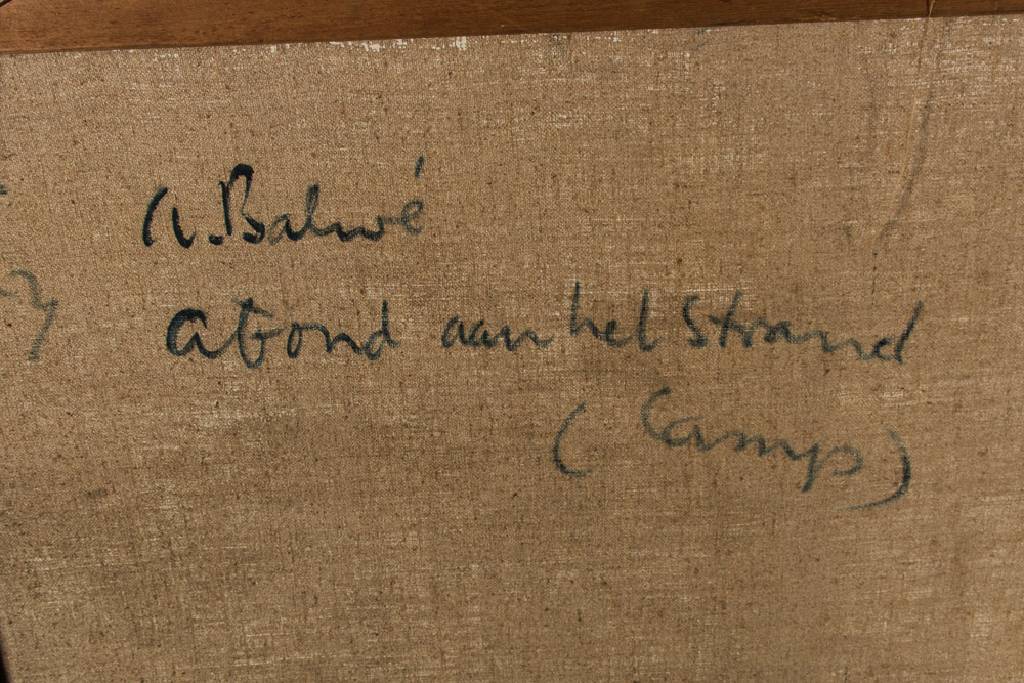 A. Balwé
abond aan het Strand
(Camps)